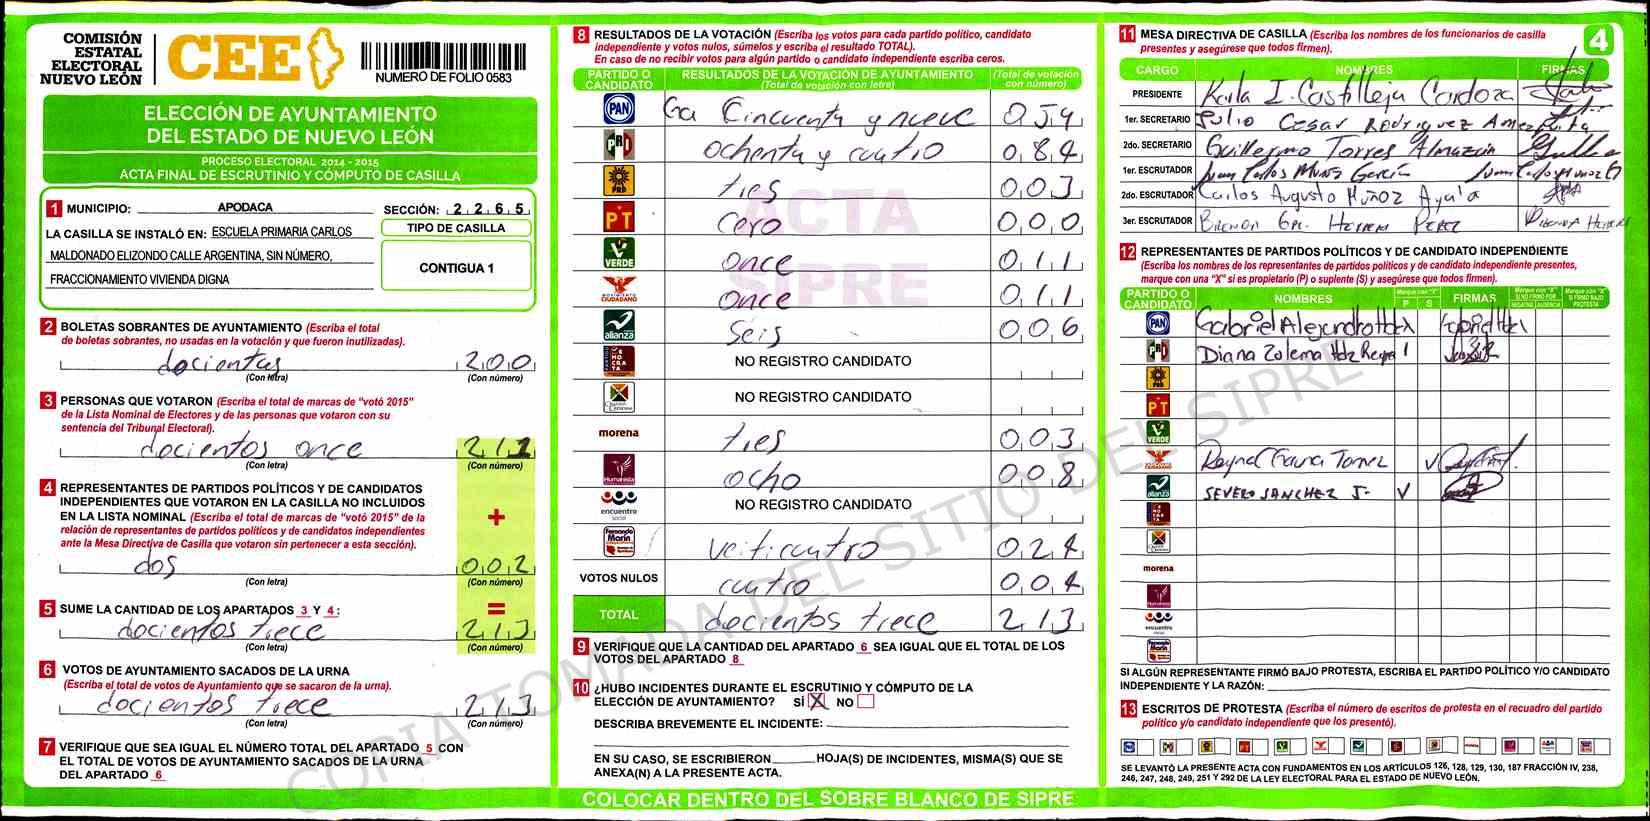 COMISIÓN
ESTATAL
ELECTORAL
NUEVO LEÓN
CEE
NUMERO DE FOLIO 0583
ELECCIÓN DE AYUNTAMIENTO
DEL ESTADO DE NUEVO LEÓN
PROCESO ELECTORAL 2014 - 2015
ACTA FINAL DE ESCRUTINIO Y CÓMPUTO DE CASILLA
1 MUNICIPIO: APODACA SECCIÓN: 2 2 6 5
LA CASILLA SE INSTALÓ EN: ESCUELA PRIMARIA CARLOS
MALDONADO ELIZONDO CALLE ARGENTINA, SIN NÚMERO,
FRACCIONAMIENTO VIVIENDA DIGNA
TIPO DE CASILLA
CONTIGUA 1
2 BOLETAS SOBRANTES DE AYUNTAMIENTO (Escriba el total
de boletas sobrantes, no usadas en la votación y que fueron inutilizadas).
docientas 2 0 0
(Con letra) (Con número)
3 PERSONAS QUE VOTARON (Escriba el total de marcas de "votó 2015"
de la Lista Nominal de Electores y de las personas que votaron con su
sentencia del Tribunal Electoral).
docientos once 2 1 1
(Con letra) (Con número)
4 REPRESENTANTES DE PARTIDOS POLÍTICOS Y DE CANDIDATOS
INDEPENDIENTES QUE VOTARON EN LA CASILLA NO INCLUIDOS
EN LA LISTA NOMINAL (Escriba el total de marcas de "votó 2015" de la
relación de representantes de partidos políticos y de candidatos independientes
ante la Mesa Directiva de Casilla que votaron sin pertenecer a esta sección).
+
dos 0 0 2
(Con letra) (Con número)
5 SUME LA CANTIDAD DE LOS APARTADOS 3 Y 4: =
docientos trece 2 1 3
(Con letra) (Con número)
6 VOTOS DE AYUNTAMIENTO SACADOS DE LA URNA
(Escriba el total de votos de Ayuntamiento que se sacaron de la urna).
docientos trece 2 1 3
(Con letra) (Con número)
7 VERIFIQUE QUE SEA IGUAL EL NÚMERO TOTAL DEL APARTADO 5 CON
EL TOTAL DE VOTOS DE AYUNTAMIENTO SACADOS DE LA URNA
DEL APARTADO 6
8 RESULTADOS DE LA VOTACIÓN (Escriba los votos para cada partido político, candidato
independiente y votos nulos, súmelos y escriba el resultado TOTAL).
En caso de no recibir votos para algún partido o candidato independiente escriba ceros.
PARTIDO O CANDIDATO RESULTADOS DE LA VOTACIÓN DE AYUNTAMIENTO (Total de votación con letra) (Total de votación con número)
PAN Cincuenta y nueve 0 5 9
PRI ochenta y cuatro 0 8 4
PRD tres 0 0 3
PT cero 0 0 0
VERDE once 0 1 1
MOVIMIENTO CIUDADANO once 0 1 1
alianza seis 0 0 6
NO REGISTRO CANDIDATO
NO REGISTRO CANDIDATO
morena tres 0 0 3
Humanista ocho 0 0 8
encuentro social NO REGISTRO CANDIDATO
Fernando Marín veiticuatro 0 2 4
VOTOS NULOS cuatro 0 0 4
TOTAL docientos trece 2 1 3
ACTA
SIPRE
9 VERIFIQUE QUE LA CANTIDAD DEL APARTADO 6 SEA IGUAL QUE EL TOTAL DE LOS
VOTOS DEL APARTADO 8
10 ¿HUBO INCIDENTES DURANTE EL ESCRUTINIO Y CÓMPUTO DE LA
ELECCIÓN DE AYUNTAMIENTO? SÍ X NO
DESCRIBA BREVEMENTE EL INCIDENTE:
EN SU CASO, SE ESCRIBIERON HOJA(S) DE INCIDENTES, MISMA(S) QUE SE
ANEXA(N) A LA PRESENTE ACTA.
COLOCAR DENTRO DEL SOBRE BLANCO DE SIPRE
11 MESA DIRECTIVA DE CASILLA (Escriba los nombres de los funcionarios de casilla
presentes y asegúrese que todos firmen).
4
CARGO NOMBRES FIRMAS
PRESIDENTE Karla I. Castilleja Cardoza
1er. SECRETARIO Julio Cesar Rodriguez Amezquita
2do. SECRETARIO Guillermo Torres Almazan
1er. ESCRUTADOR Juan Carlos Muñoz García
2do. ESCRUTADOR Carlos Augusto Muñoz Ayala
3er. ESCRUTADOR Brenda Gpe. Herrera Perez
12 REPRESENTANTES DE PARTIDOS POLÍTICOS Y DE CANDIDATO INDEPENDIENTE
(Escriba los nombres de los representantes de partidos políticos y de candidato independiente presentes,
marque con una "X" si es propietario (P) o suplente (S) y asegúrese que todos firmen).
PARTIDO O CANDIDATO NOMBRES Marque con "X" P S FIRMAS Marque con "X" SI NO FIRMÓ POR NEGATIVA AUSENCIA Marque con "X" SI FIRMÓ BAJO PROTESTA
PAN Gabriel Alejandro Hdz X
PRI Diana Zulema Hdz Reyna
PRD
PT
VERDE
Reyna Gauna Torrez
alianza SEVERO SANCHEZ J.
morena
Humanista
encuentro social
Fernando Marín
SI ALGÚN REPRESENTANTE FIRMÓ BAJO PROTESTA, ESCRIBA EL PARTIDO POLÍTICO Y/O CANDIDATO
INDEPENDIENTE Y LA RAZÓN:
13 ESCRITOS DE PROTESTA (Escriba el número de escritos de protesta en el recuadro del partido
político y/o candidato independiente que los presentó).
SE LEVANTÓ LA PRESENTE ACTA CON FUNDAMENTOS EN LOS ARTÍCULOS 126, 128, 129, 130, 187 FRACCIÓN IV, 238,
246, 247, 248, 249, 251 Y 292 DE LA LEY ELECTORAL PARA EL ESTADO DE NUEVO LEÓN.
COPIA TOMADA DEL SITIO DEL SIPRE